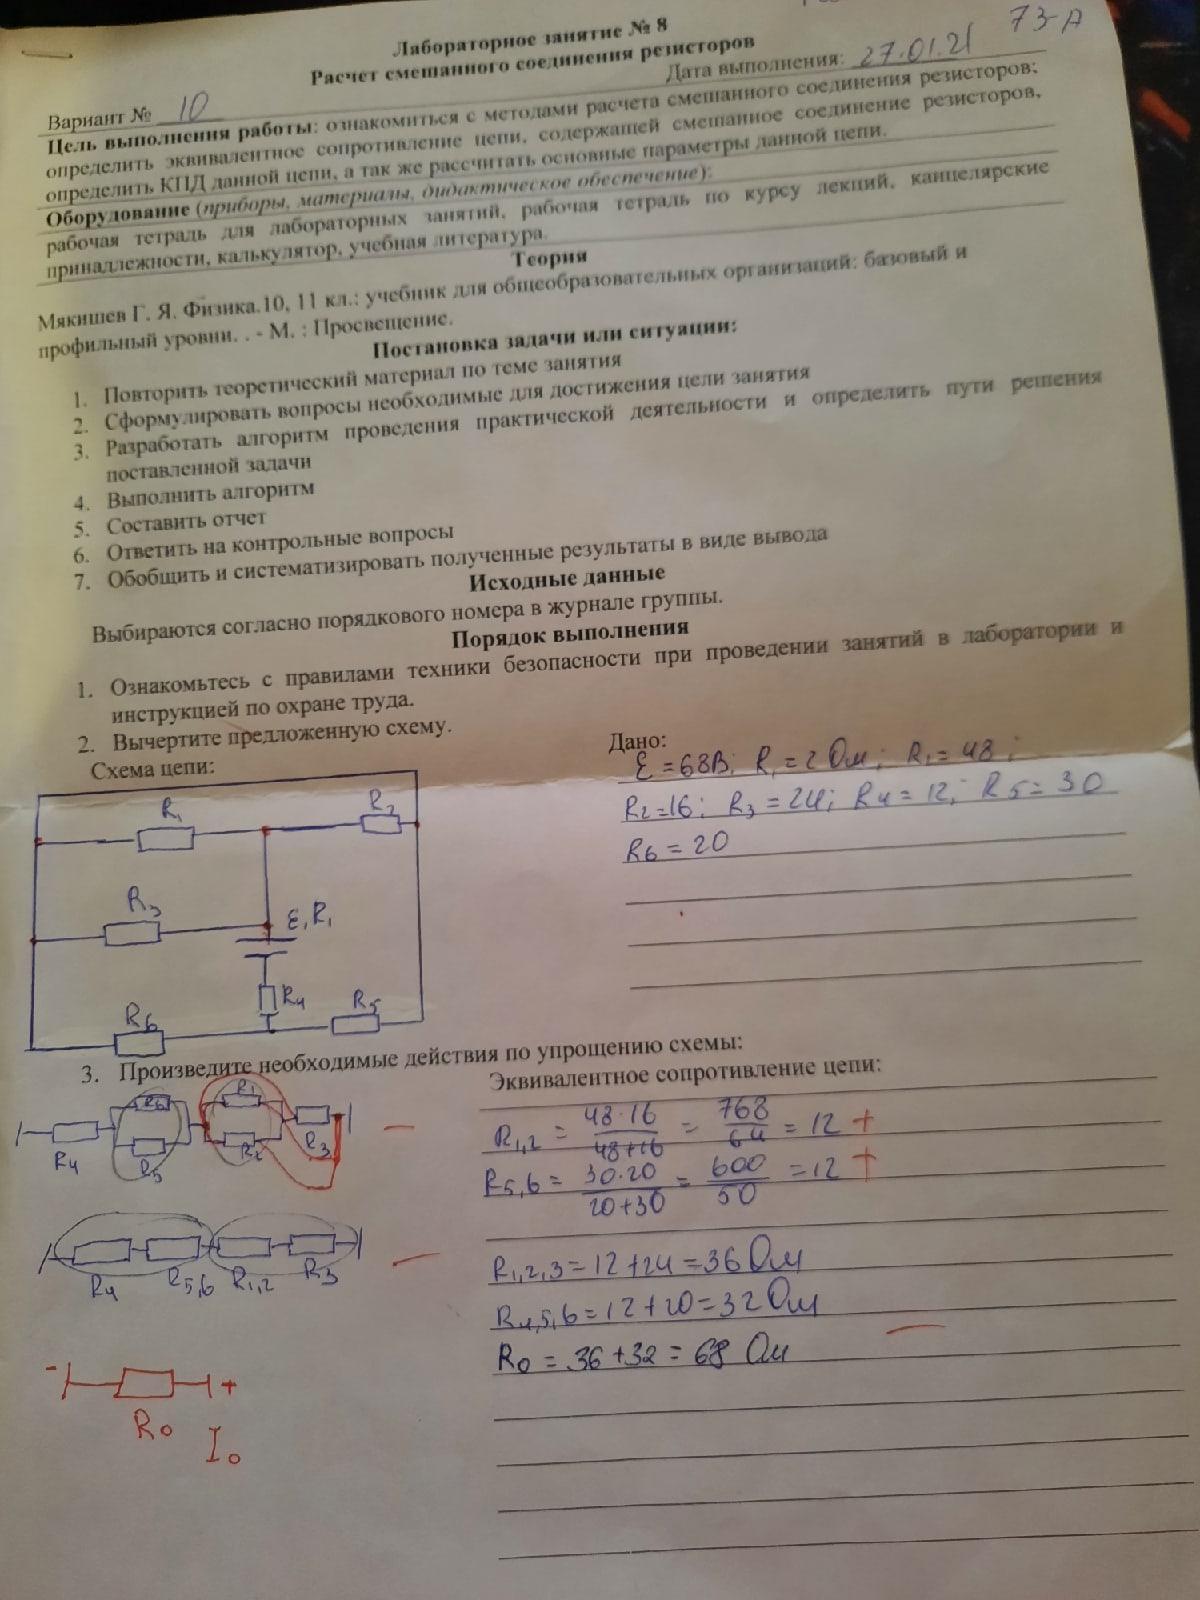 73-А
Лабораторное занятие № 8
Расчет смешанного соединения резисторов
Вариант № 10 Дата выполнения: 27.01.21
Цель выполнения работы: ознакомиться с методами расчета смешанного соединения резисторов;
определить эквивалентное сопротивление цепи, содержащей смешанное соединение резисторов,
определить КПД данной цепи, а так же рассчитать основные параметры данной цепи.
Оборудование (приборы, материалы, дидактическое обеспечение):
рабочая тетрадь для лабораторных занятий, рабочая тетрадь по курсу лекций, канцелярские
принадлежности, калькулятор, учебная литература.
Теория
Мякишев Г. Я. Физика.10, 11 кл.: учебник для общеобразовательных организаций: базовый и
профильный уровни. . - М. : Просвещение.
Постановка задачи или ситуации:
1. Повторить теоретический материал по теме занятия
2. Сформулировать вопросы необходимые для достижения цели занятия
3. Разработать алгоритм проведения практической деятельности и определить пути решения
поставленной задачи
4. Выполнить алгоритм
5. Составить отчет
6. Ответить на контрольные вопросы
7. Обобщить и систематизировать полученные результаты в виде вывода
Исходные данные
Выбираются согласно порядкового номера в журнале группы.
Порядок выполнения
1. Ознакомьтесь с правилами техники безопасности при проведении занятий в лаборатории и
инструкцией по охране труда.
2. Вычертите предложенную схему.
Схема цепи:
Дано:
Ɛ = 68В; R1 = 2 Ом; R1 = 48;
R2 = 16; R3 = 24; R4 = 12; R5 = 30
R6 = 20
R1
R2
R3
Ɛ, R1
R4
R5
R6
3. Произведите необходимые действия по упрощению схемы:
Эквивалентное сопротивление цепи:
R6 R1
R4 R5 R2 R3
R1,2 = 48·16 / 48+16 = 768 / 64 = 12 +
R5,6 = 30·20 / 20+30 = 600 / 50 = 12 +
R4 R5,6 R1,2 R3
R1,2,3 = 12 + 24 = 36 Ом
R4,5,6 = 12 + 20 = 32 Ом
R0 = 36 + 32 = 68 Ом
- +
R0
I0